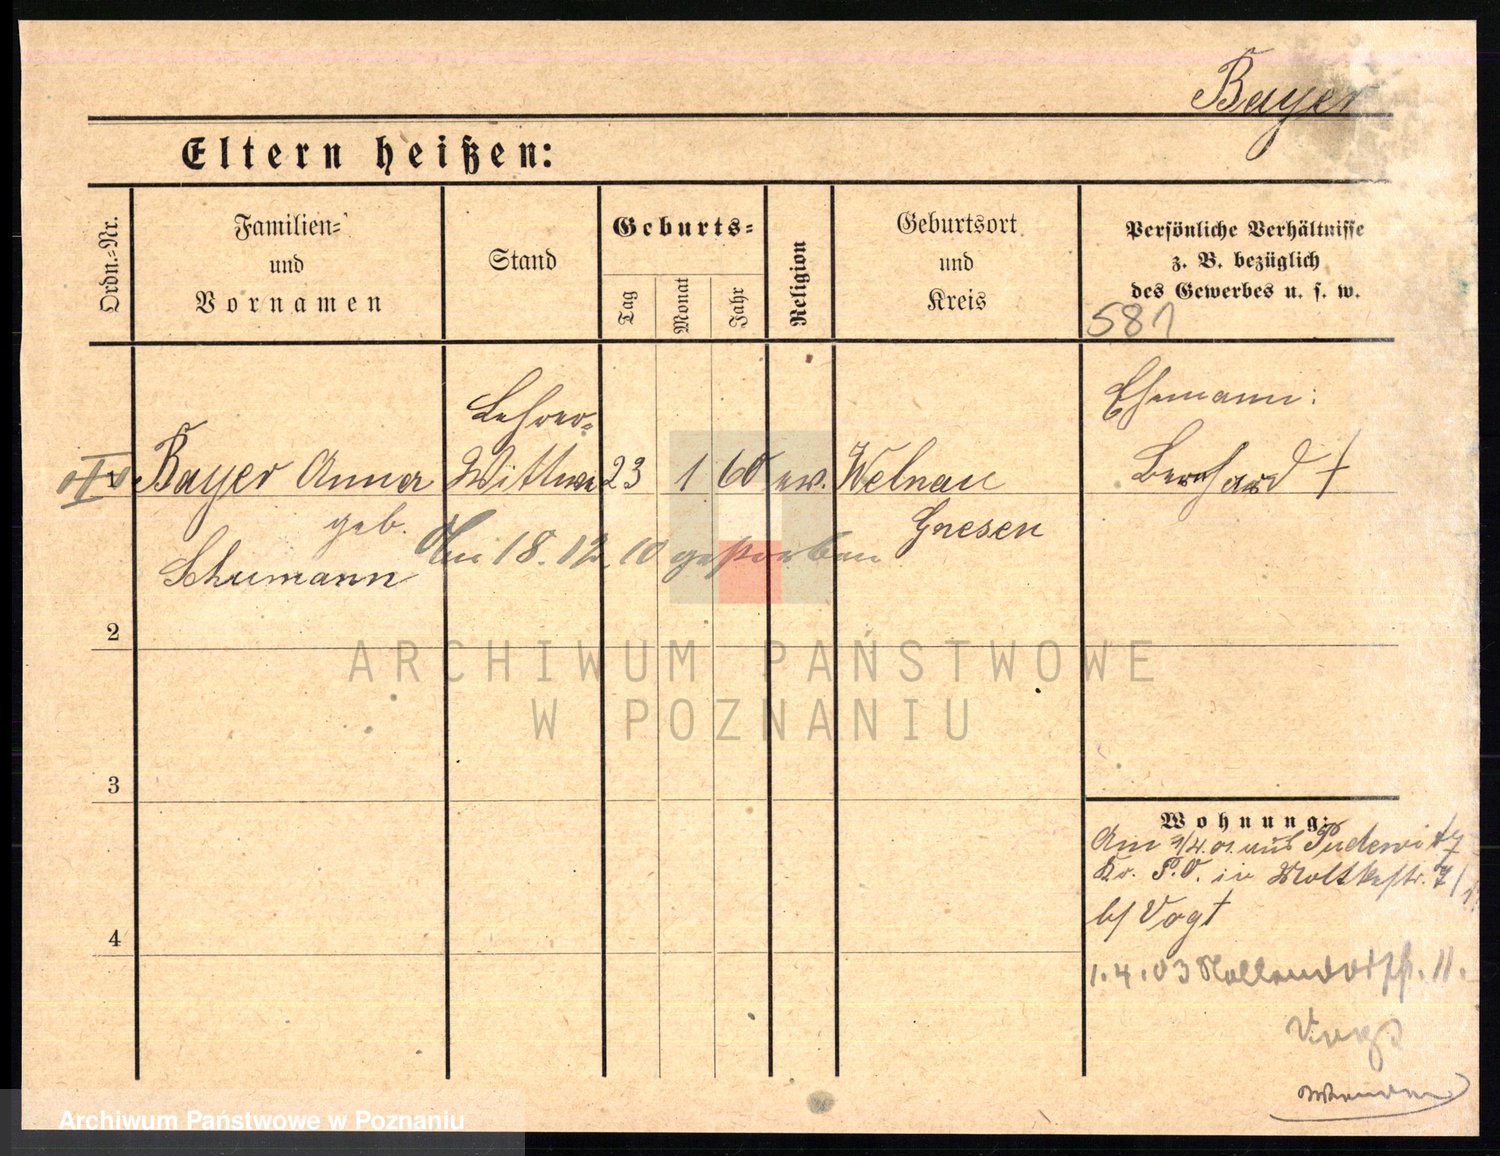 Bayer
Eltern heißen:
Ordn.-Nr.
Familien-
und
Vornamen
Stand
Geburts-
Tag
Monat
Jahr
Religion
Geburtsort
und
Kreis
Persönliche Verhältnisse
z. B. bezüglich
des Gewerbes u. s. w.
581
Lehrer-
Ehemann:
1 Bayer Anna Wittwe 23 1 60 ev. Welnau Bernhard †
geb. Gnesen
Schumann Am 18.12.10 gestorben
2
ARCHIWUM PAŃSTWOWE
W POZNANIU
3
4
Wohnung:
Am 3/4.01 aus Pudewitz
Kr. P.O. in Moltkestr. 7/
b/ Vogt
1.4.03 Nollendorfstr. 11.
Vogt
Archiwum Państwowe w Poznaniu